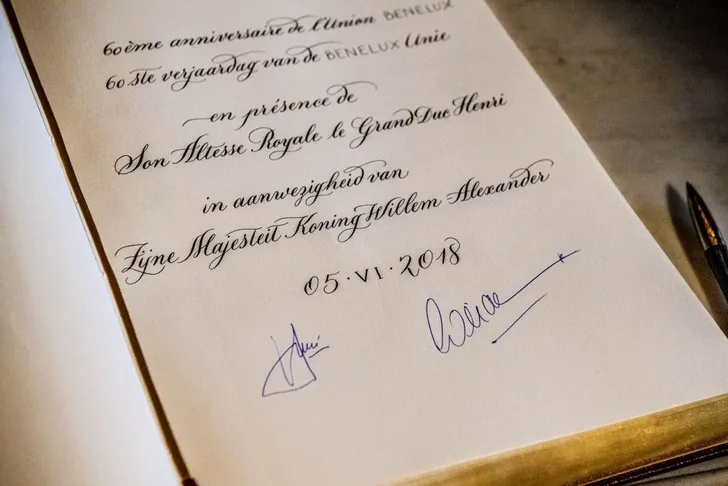 60ème anniversaire de l'Union BENELUX
60ste verjaardag van de BENELUX Unie
en présence de
Son Altesse Royale le Grand Duc Henri
in aanwezigheid van
Zijne Majesteit Koning Willem Alexander
05·VI·2018